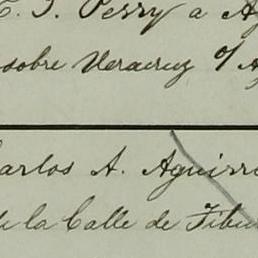 C. J. Perry a
sobre Veracruz o/
Carlos A. Aguirre
de la Calle de Tibu